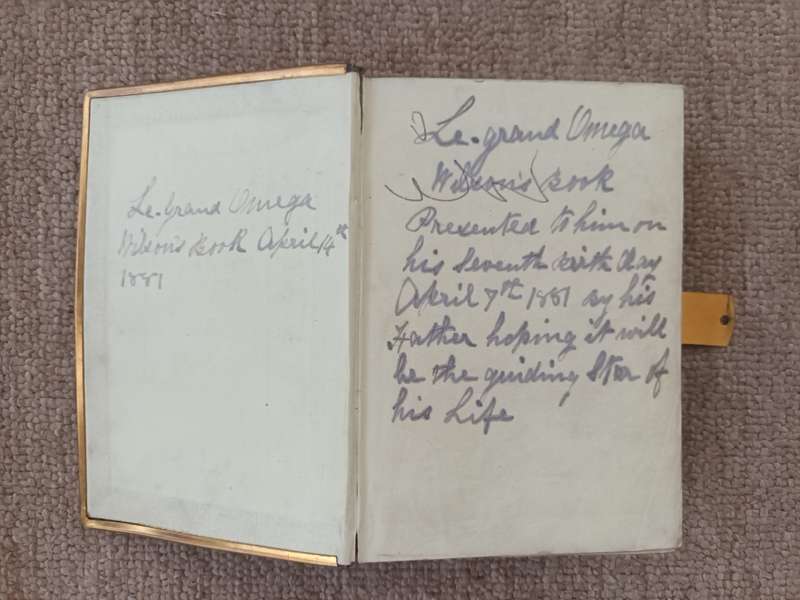 Le-grand Omega
Wilson's Book April 14th
1881
Le-grand Omega
Wilson's Book
Presented to him on
his Seventh birth day
April 7th 1881 by his
Father hoping it will
be the guiding Star of
his Life